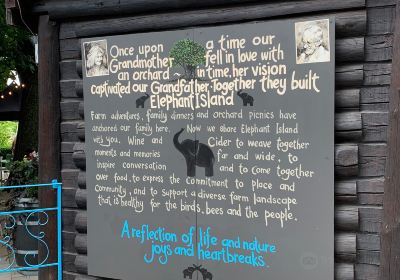 Once upon a time our
Grandmother fell in love with
an orchard ~ in time, her vision
captivated our Grandfather. Together they built
Elephant Island
Farm adventures, family dinners and orchard picnics have
anchored our family here. Now we share Elephant Island
with you. Wine and Cider to weave together
moments and memories far and wide, to
inspire conversation and to come together
over food, to express the commitment to place and
community, and to support a diverse farm landscape
that is healthy for the birds, bees and the people.
A reflection of life and nature
joys and heartbreaks.